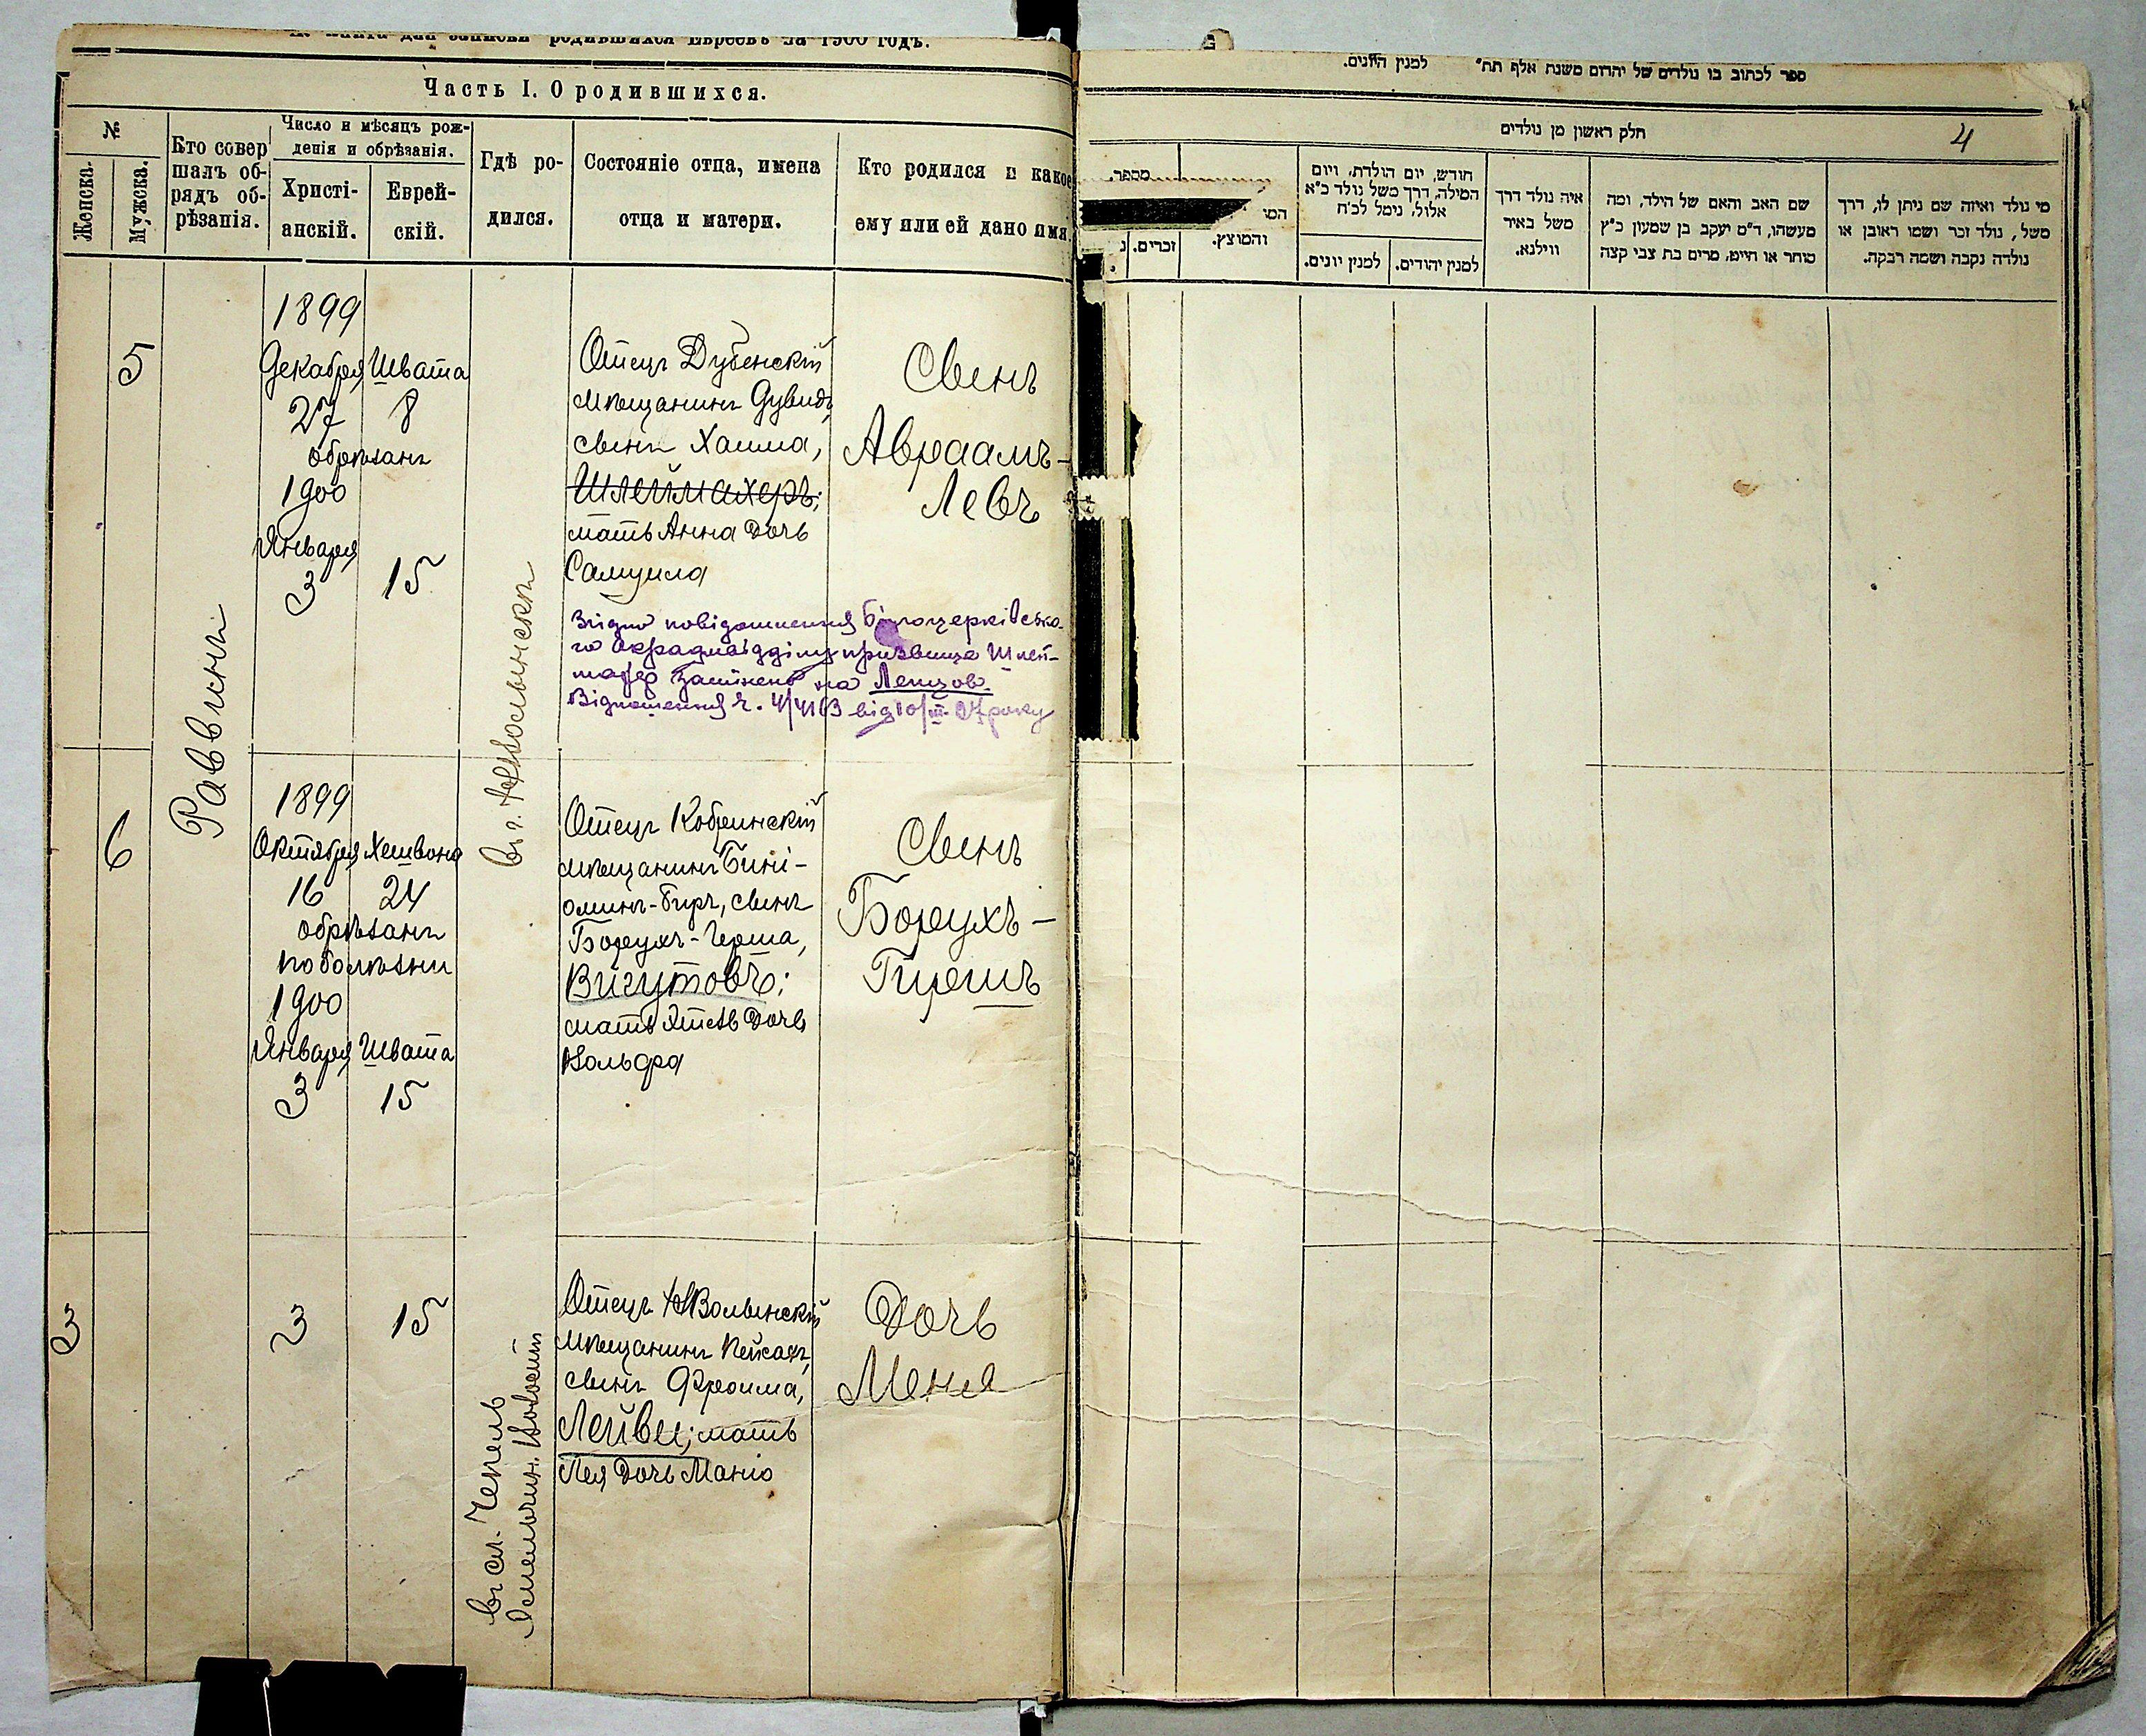 для записи родившихся Евреевъ за 1900 годъ.
Часть I. О родившихся.
№
Женска.
Мужска.
Кто совер
шалъ об-
рядъ об-
рѣзанія.
Число и мѣсяцъ рож-
денія и обрѣзанія.
Христі-
анскій.
Еврей-
скій.
Гдѣ ро-
дился.
Состояніе отца, имена
отца и матери.
Кто родился и какое
ему или ей дано имя.
5
Раввинъ
1899
Декабря Швата
27 8
обрѣзанъ
1900
Января
3 15
Отецъ Дубенскій
мѣщанинъ Дувидъ,
сынъ Хаима,
Шлеймахеръ;
мать Анна дочь
Самуила
Згідно повідомлення Білоцерківсько-
го Окрадмвідділу призвище Шлей-
махер замінено на Лемзов.
Відношення ч. 4/4163 від 10/III-27 року
Сынъ
Авраамъ-
Левъ
6
1899
Октября Хешвона
16 24
обрѣзанъ
по болѣзни
1900
Января Швата
3 15
Отецъ Кобринскій
мѣщанинъ Бині-
оминъ-Биръ, сынъ
Борухъ-Герша,
Вигутовъ;
мать дочь
Вольфа
Сынъ
Борухъ-
Гиршъ
3
3 15
въ сл. Чепель
Отецъ НВолынскій
мѣщанинъ Пейсахъ,
сынъ Фроима,
Лейви; мать
Лея дочь Маніо
Дочь
Меня
ספר לכתוב בו נולדים של יהודים משנת אלף תת״ למנין היונים.
חלק ראשון מן נולדים
4
מספר.
זכרים.
והמוצץ.
חודש, יום הולדת, ויום
המילה, דרך משל נולד כ״א
אלול, נימל לכ״ח
למנין יונים.
למנין יהודים.
איה נולד דרך
משל באיר
ווילנא.
שם האב והאם של הילד, ומה
מעשהו, ד״מ יעקב בן שמעון כ״ץ
סוחר או חייט, מרים בת צבי קצה
מי נולד ואיזה שם ניתן לו, דרך
משל, נולד זכר ושמו ראובן או
נולדה נקבה ושמה רבקה.